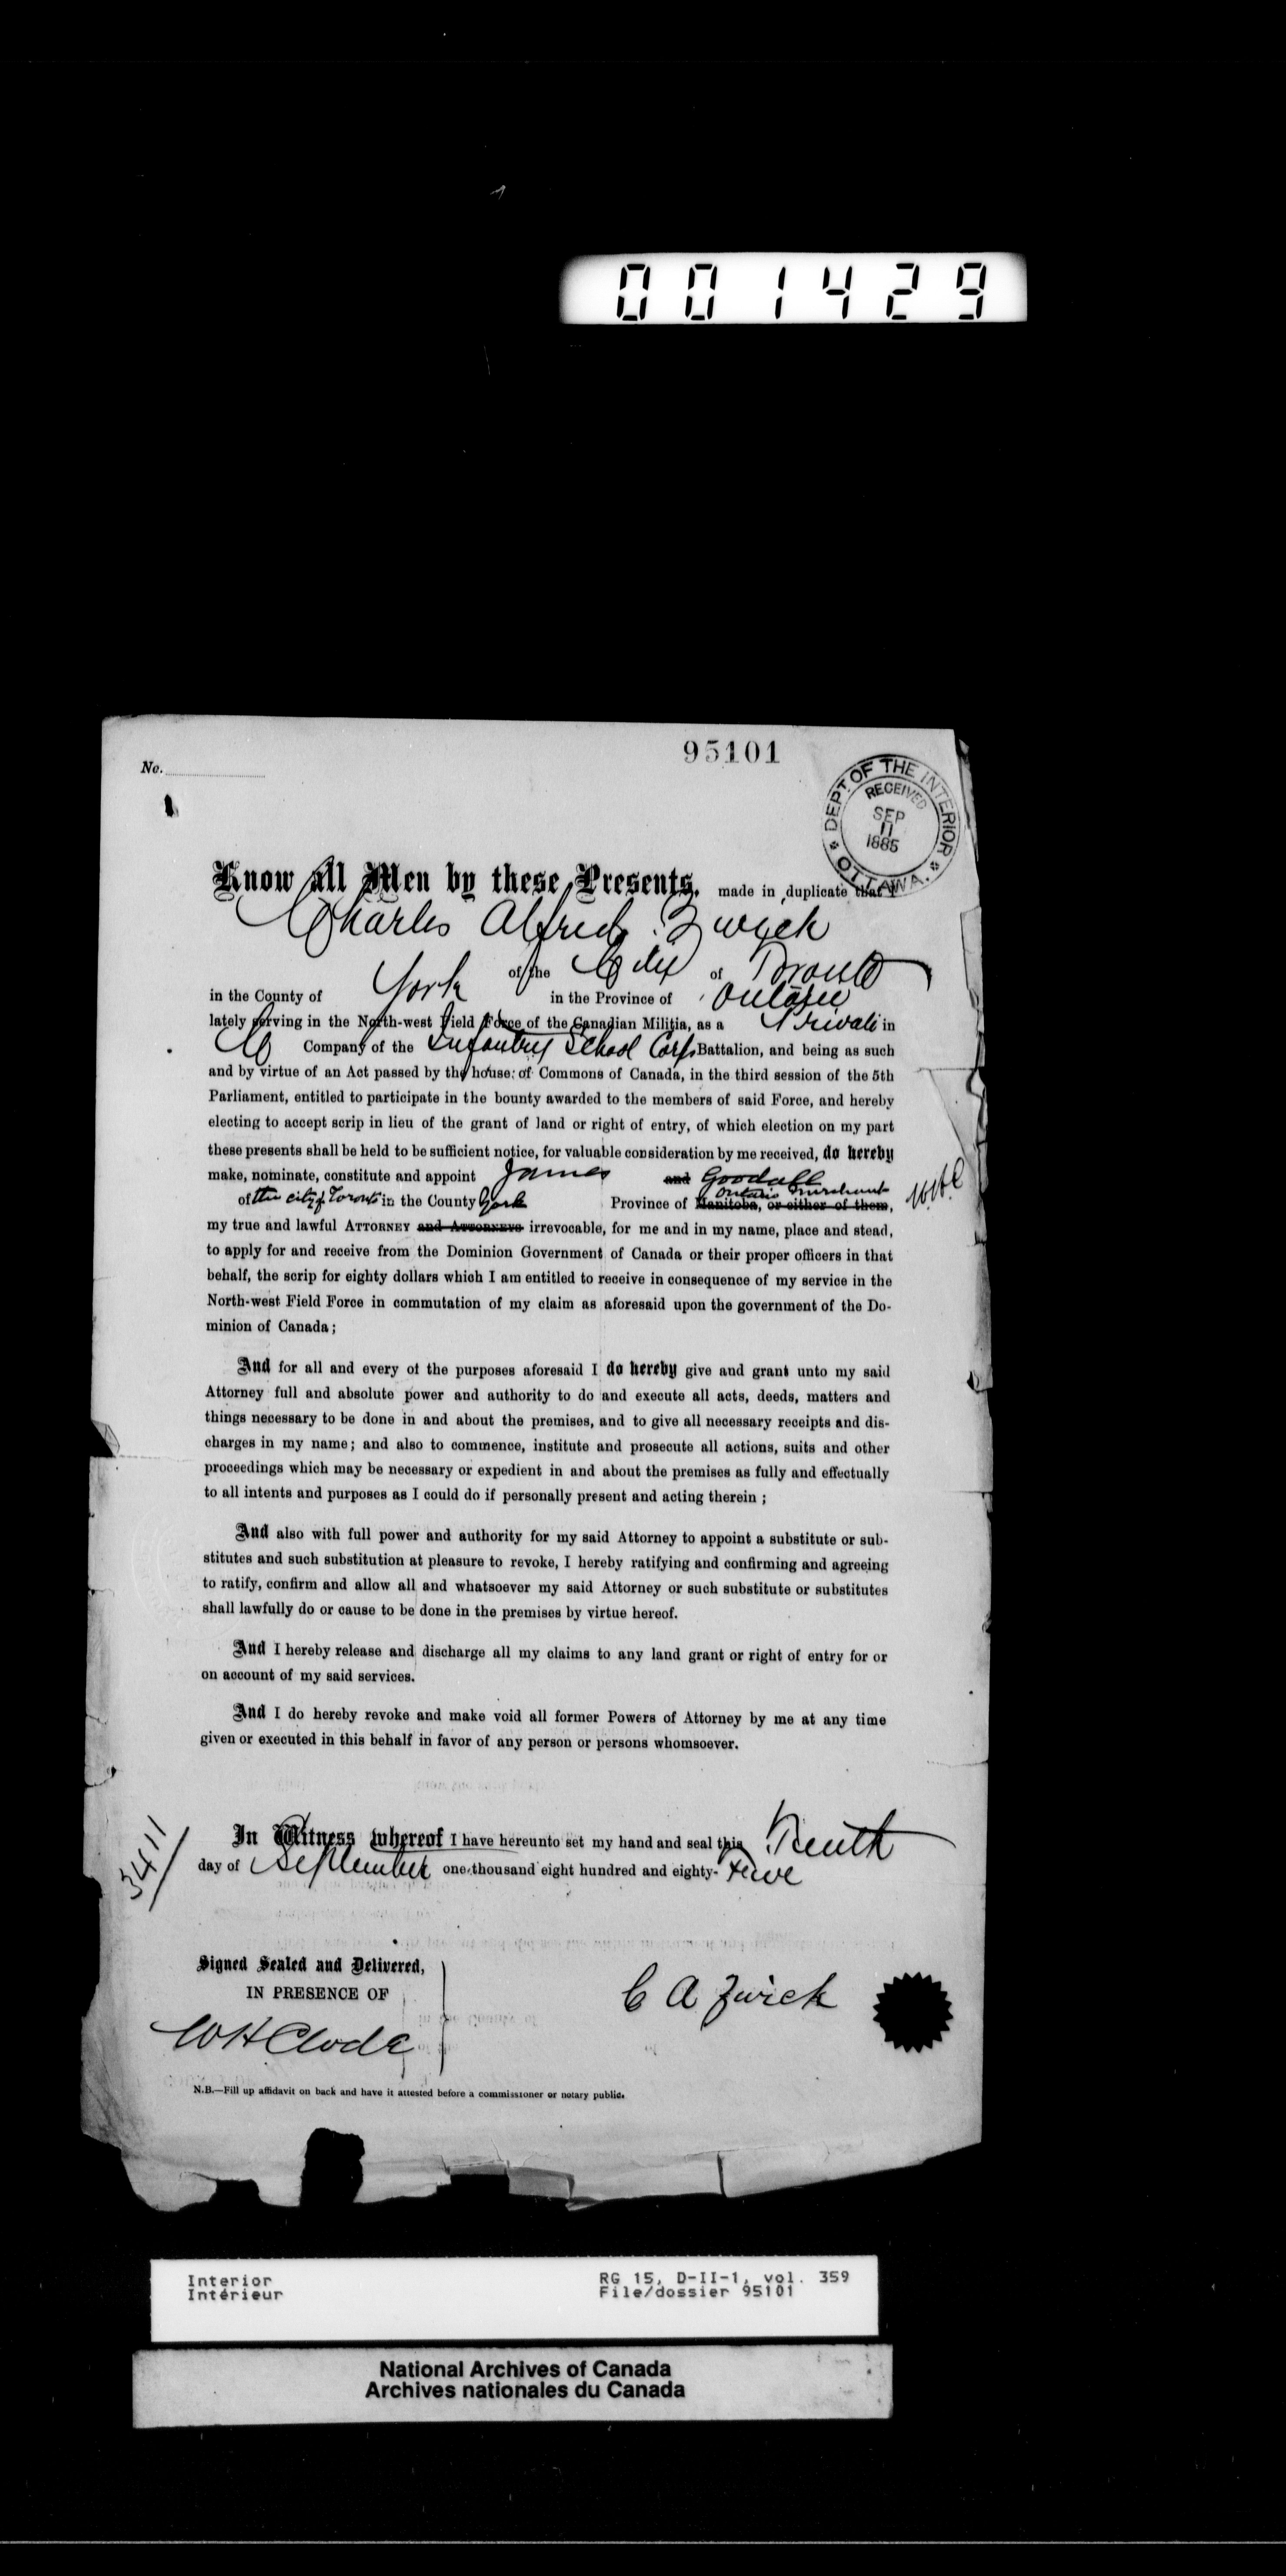 001429
95101
No.
DEPT. OF THE INTERIOR
RECEIVED
SEP
11
1885
OTTAWA.
Know all Men by these Presents, made in duplicate that I
Charles Alfred Zwick
of the City of Toronto
in the County of York in the Province of Ontario
lately serving in the North-west Field Force of the Canadian Militia, as a Private in
C Company of the Infantry School Corps Battalion, and being as such
and by virtue of an Act passed by the house of Commons of Canada, in the third session of the 5th
Parliament, entitled to participate in the bounty awarded to the members of said Force, and hereby
electing to accept scrip in lieu of the grant of land or right of entry, of which election on my part
these presents shall be held to be sufficient notice, for valuable consideration by me received, do hereby
make, nominate, constitute and appoint James and Goodall
Ontario Merchant
of the city of Toronto in the County York Province of Manitoba, or either of them,
WHC
my true and lawful ATTORNEY and ATTORNEYS irrevocable, for me and in my name, place and stead,
to apply for and receive from the Dominion Government of Canada or their proper officers in that
behalf, the scrip for eighty dollars which I am entitled to receive in consequence of my service in the
North-west Field Force in commutation of my claim as aforesaid upon the government of the Do-
minion of Canada;
And for all and every of the purposes aforesaid I do hereby give and grant unto my said
Attorney full and absolute power and authority to do and execute all acts, deeds, matters and
things necessary to be done in and about the premises, and to give all necessary receipts and dis-
charges in my name; and also to commence, institute and prosecute all actions, suits and other
proceedings which may be necessary or expedient in and about the premises as fully and effectually
to all intents and purposes as I could do if personally present and acting therein ;
And also with full power and authority for my said Attorney to appoint a substitute or sub-
stitutes and such substitution at pleasure to revoke, I hereby ratifying and confirming and agreeing
to ratify, confirm and allow all and whatsoever my said Attorney or such substitute or substitutes
shall lawfully do or cause to be done in the premises by virtue hereof.
And I hereby release and discharge all my claims to any land grant or right of entry for or
on account of my said services.
And I do hereby revoke and make void all former Powers of Attorney by me at any time
given or executed in this behalf in favor of any person or persons whomsoever.
3411
In Witness whereof I have hereunto set my hand and seal this Tenth
day of September one thousand eight hundred and eighty-five
Signed Sealed and Delivered,
IN PRESENCE OF
C A Zwick
W H Clode
N.B.—Fill up affidavit on back and have it attested before a commissioner or notary public.
Interior RG 15, D-II-1, vol. 359
Intérieur File/dossier 95101
National Archives of Canada
Archives nationales du Canada